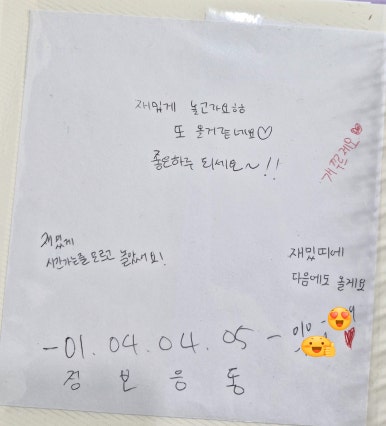 재밌게 놀고가요ㅎㅎ
또 올거같네요♡
좋은하루 되세요~!!
재밌게
시간가는줄 모르고 놀았어요!
재밌띠에
다음에도 올게요
-01.04.04.05-
정 보 응 동
010